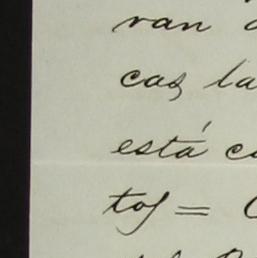 van
cas la
está c
tos =